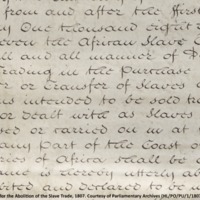 from and after the first
ay One thousand eight
even the African Slave
ll and all manner of
Trading in the Purchase
r or Transfer of Slaves
ns intended to be sold tra
or dealt with as Slaves
sed or carried on in at
any part of the Coast o
ries of Africa shall be
ame is hereby utterly ab
bited and declared to be u
for the Abolition of the Slave Trade, 1807. Courtesy of Parliamentary Archives